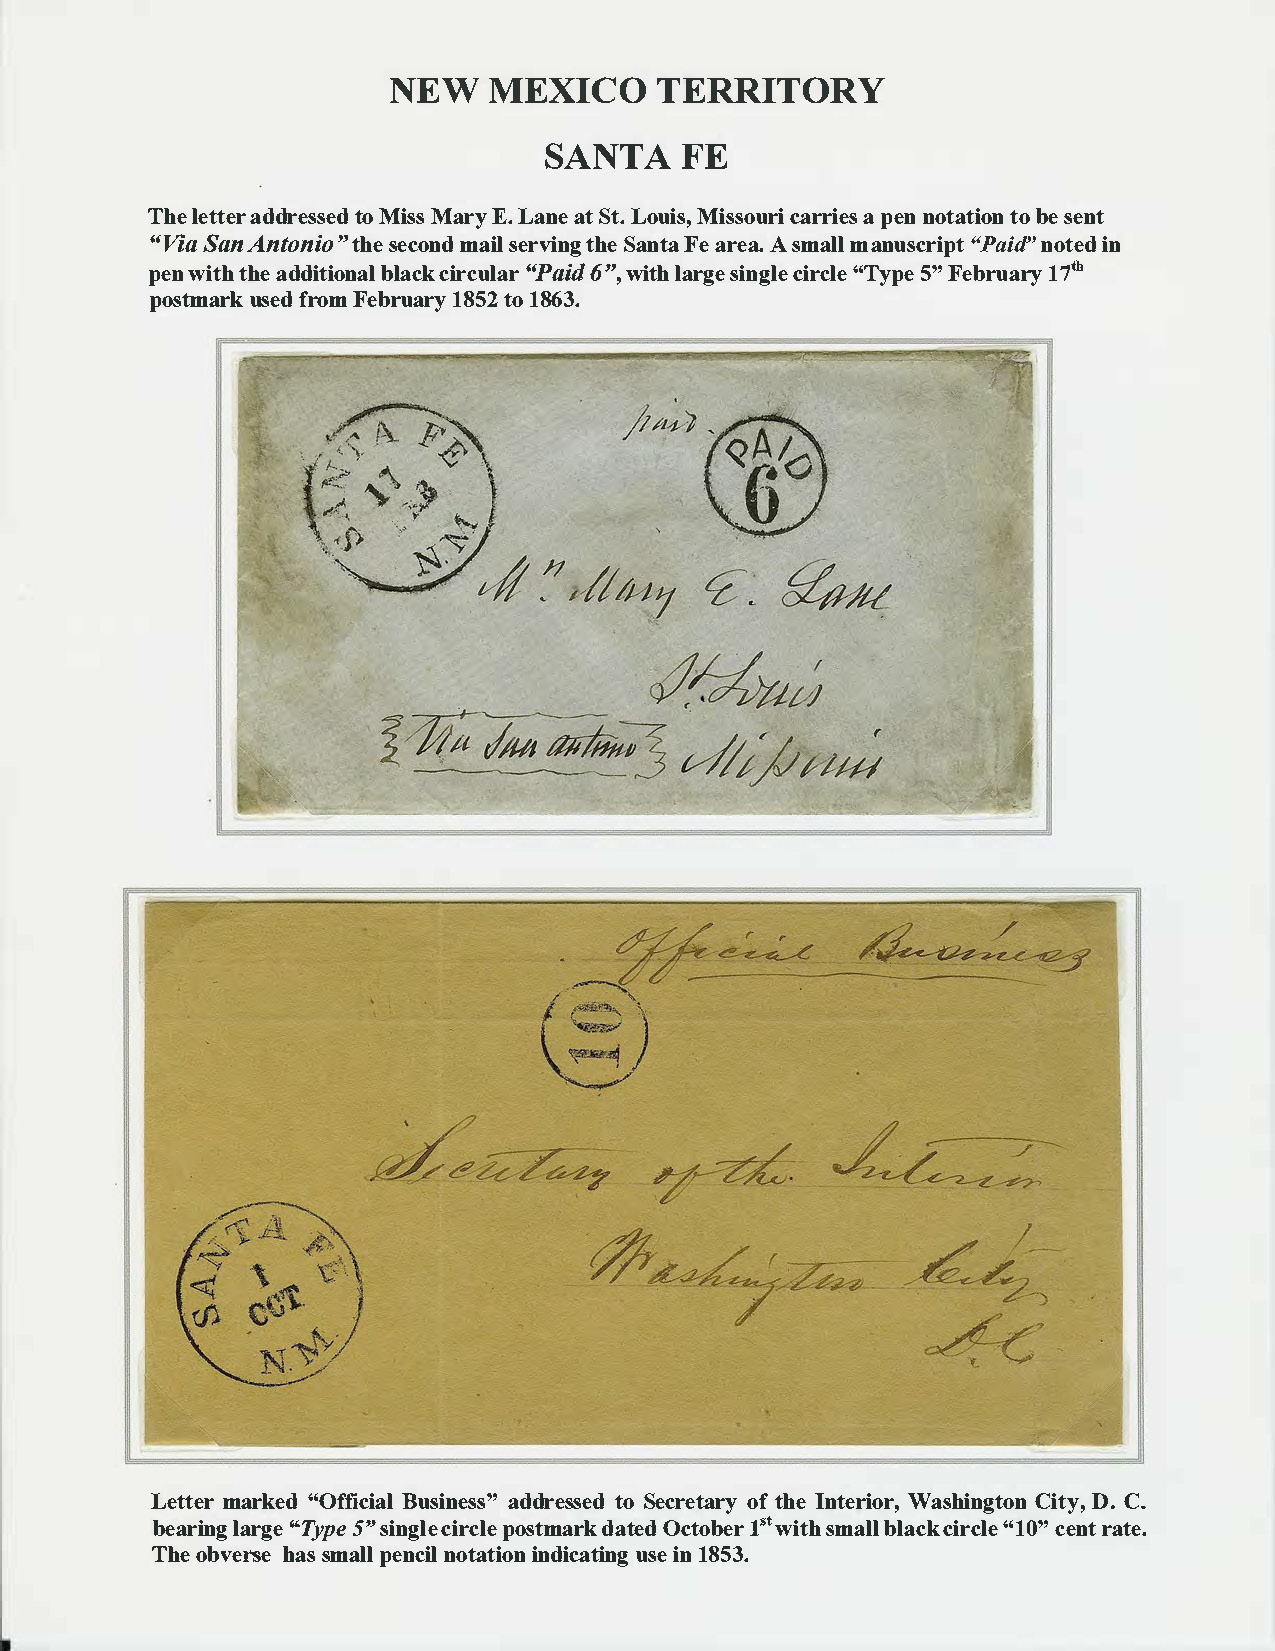 NEW MEXICO TERRITORY
SANTA FE
The letter addressed to Miss Mary E. Lane at St. Louis, Missouri carries a pen notation to be sent
“Via San Antonio” the second mail serving the Santa Fe area. A small manuscript “Paid” noted in
pen with the additional black circular “Paid 6”, with large single circle “Type 5” February 17th
postmark used from February 1852 to 1863.
paid.
PAID
6
SANTA FE
17
FEB
N.M
Mary E. Lane
St. Louis
Via San Antonio
Missouri
Official Business
10
Secretary of the Interior
Washington City
D.C
SANTA FE
1
OCT
N.M.
Letter marked “Official Business” addressed to Secretary of the Interior, Washington City, D. C.
bearing large “Type 5” single circle postmark dated October 1st with small black circle “10” cent rate.
The obverse has small pencil notation indicating use in 1853.